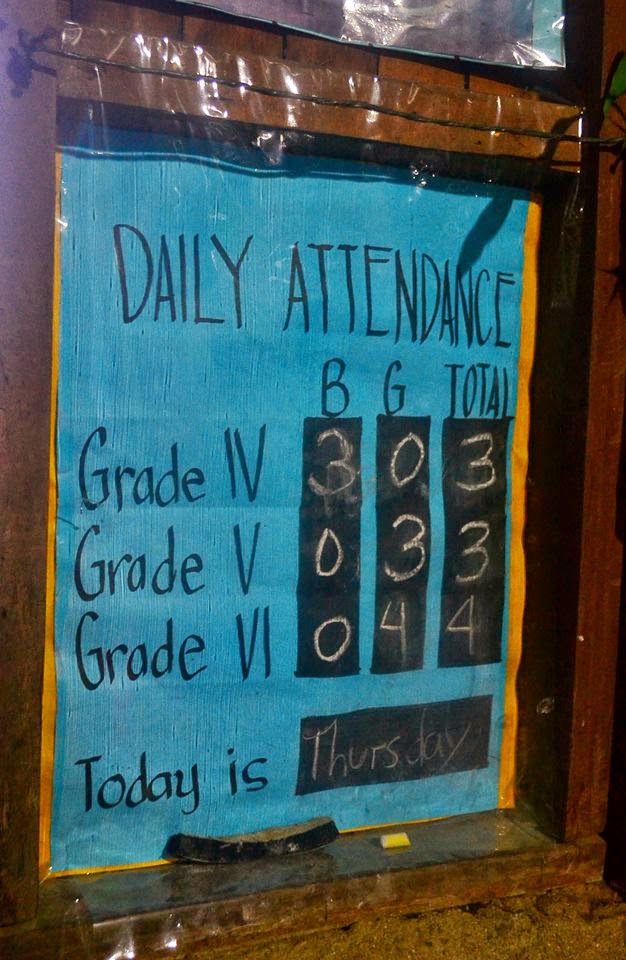 DAILY ATTENDANCE
B G TOTAL
Grade IV 3 0 3
Grade V 0 3 3
Grade VI 0 4 4
Today is Thursday